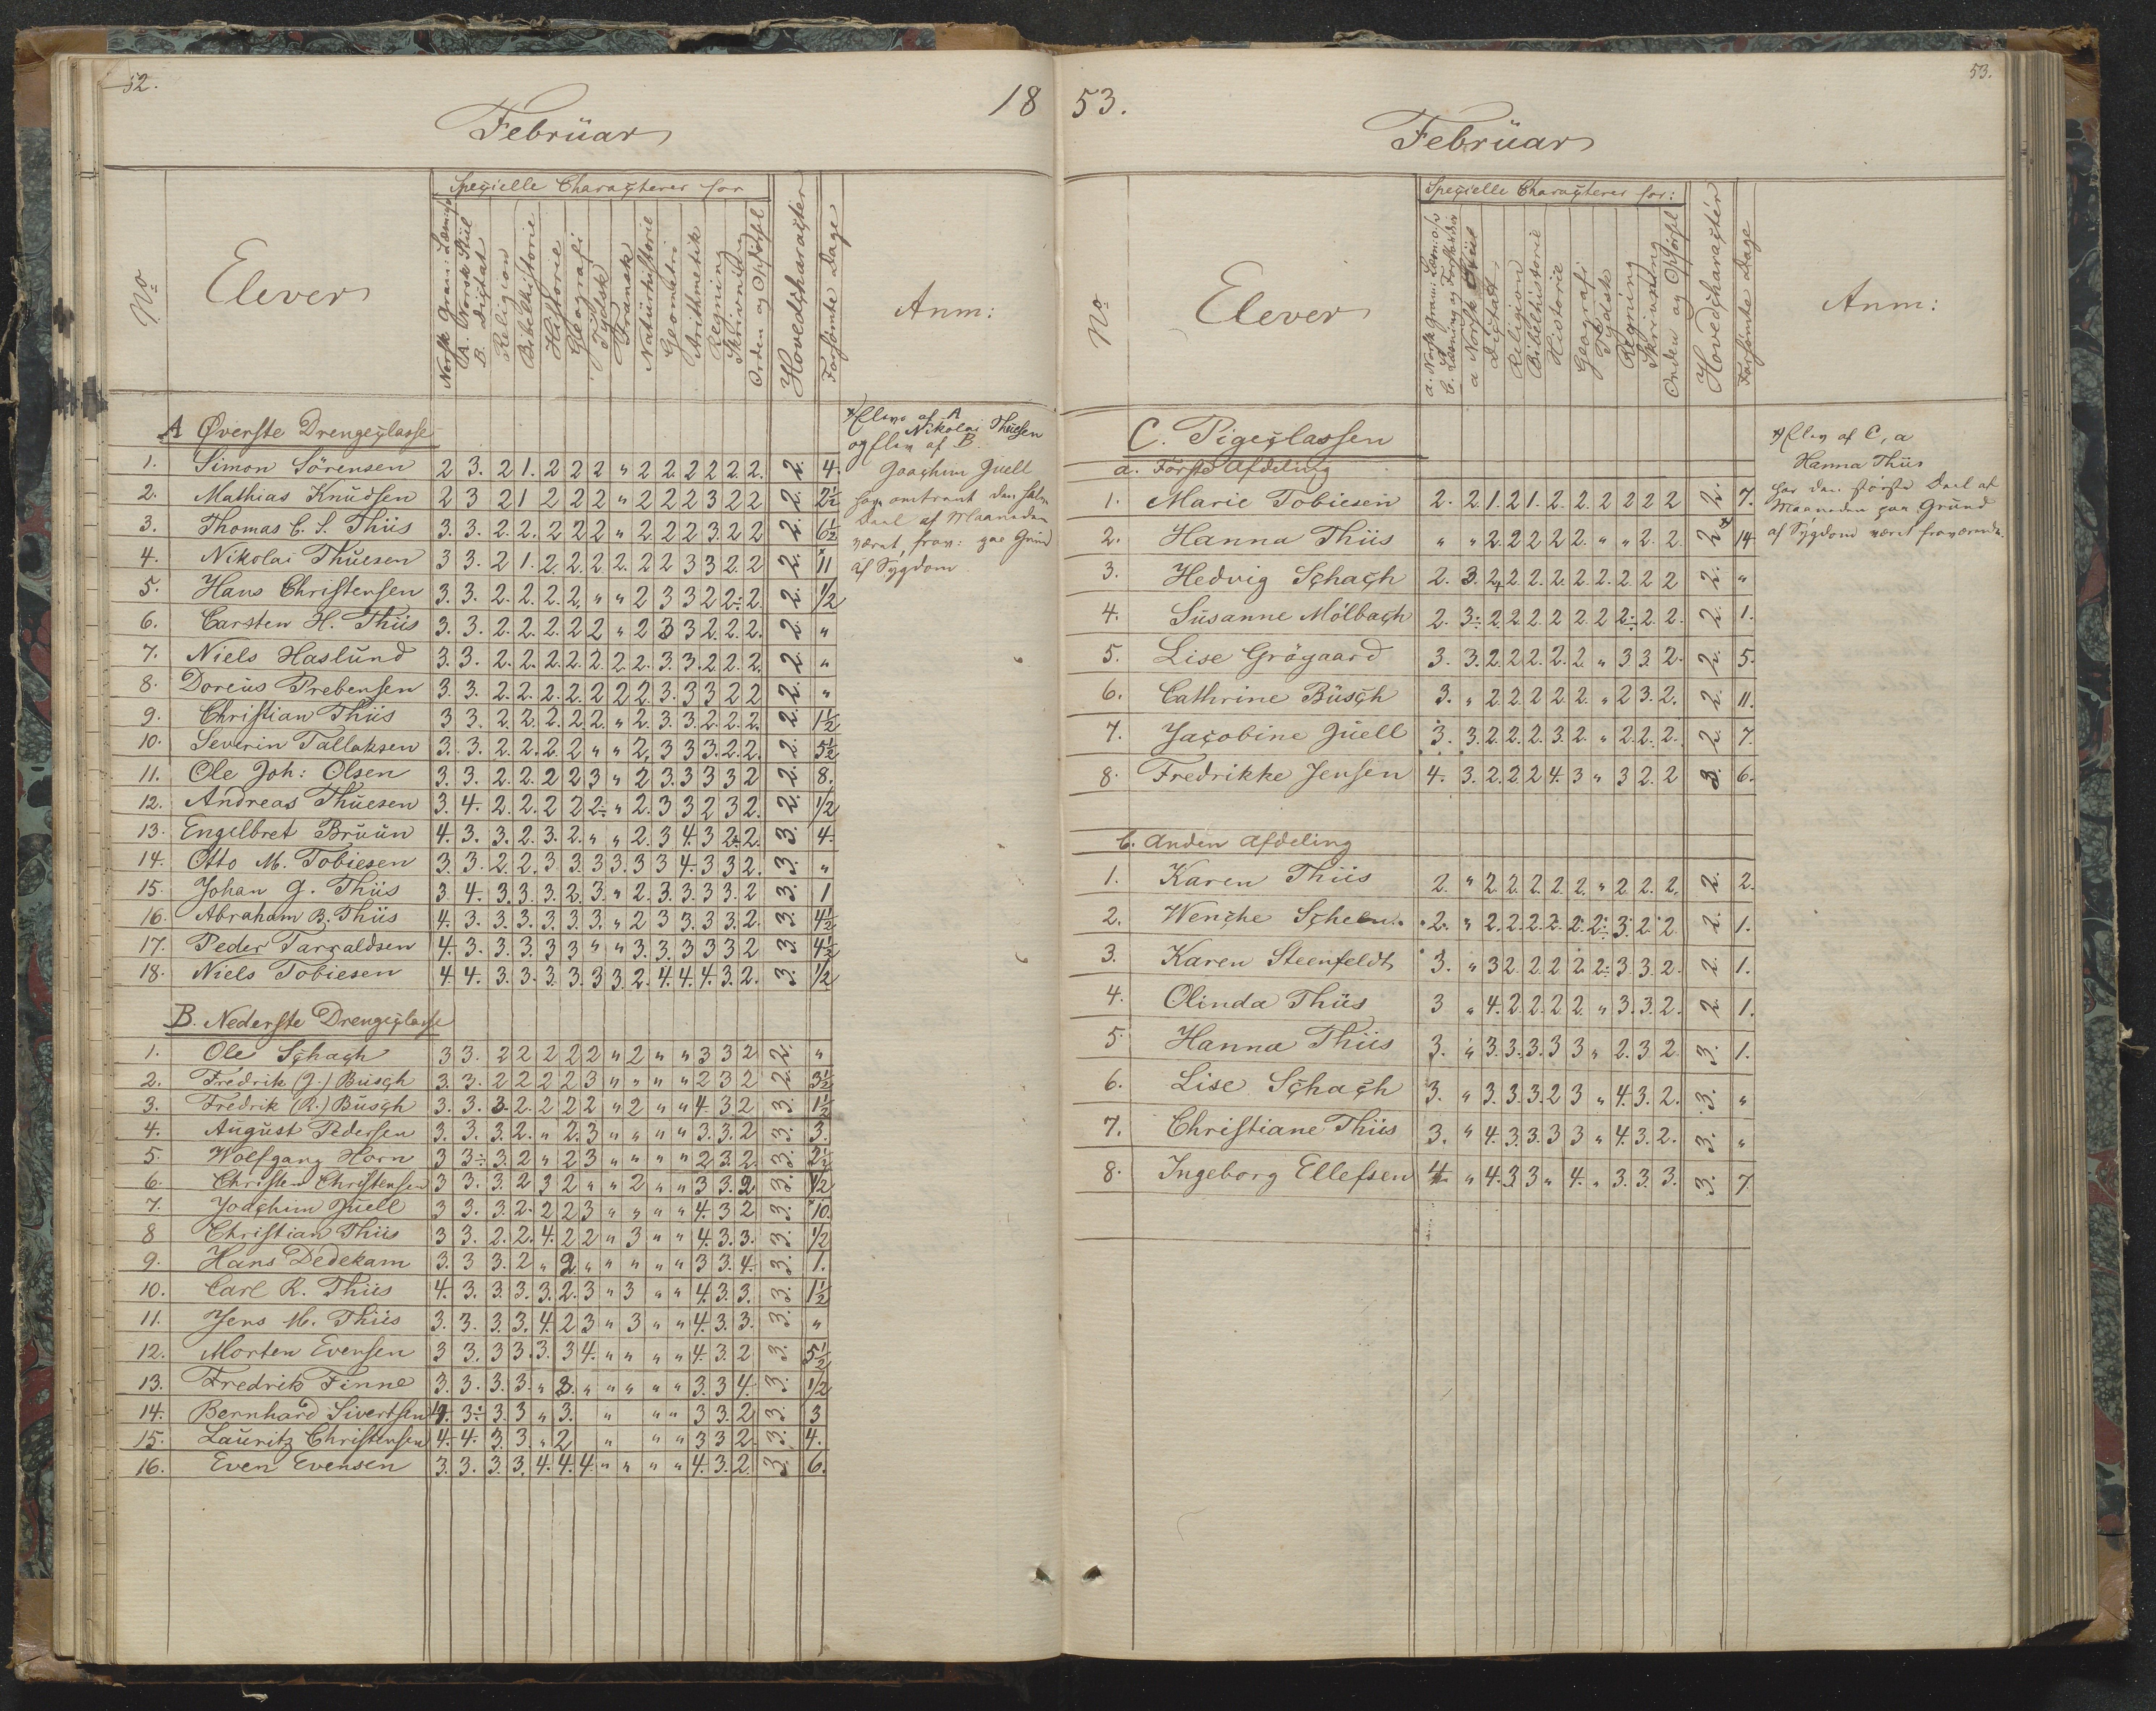 52.
18
Februar
No
Elever
Specielle Characterer for
Norsk Gram: Læsning
A. Norsk Stiil
B. Dictat
Religion
Bibelhistorie
Historie
Geografi
Tydsk
Fransk
Naturhistorie
Geometri
Arithmetik
Regning
Skrivning
Orden og Opførsel
Hovedcharacter
Forsømte Dage
Anm:
A Øverste Drengeclasse
1. Simon Sörensen 2 3. 2 1. 2 2 2 " 2 2. 2 2 2 2. 2. 4.
2. Mathias Knudsen 2 3 2 1 2 2 2 " 2 2 2 3 2 2 2. 2½
3. Thomas C. S. Thiis 3. 3. 2. 2. 2 2 2 " 2. 2 2 3. 2 2 2. 6½
4. Nikolai Thuesen 3 3. 2 1. 2. 2. 2. 2. 2 2 3 3 2. 2 2. 11
5. Hans Christensen 3. 3. 2. 2. 2. 2. " " 2 3 3 2 2÷ 2. 2. 1/2
6. Carsten H. Thiis 3. 3. 2. 2. 2. 2 2 " 2 3 3 2. 2. 2. 2. "
7. Niels Haslund 3. 3. 2. 2. 2. 2. 2. 2. 2. 3. 3. 2. 2. 2. 2. "
8. Doreus Prebensen 3. 3. 2. 2. 2. 2. 2 2 2. 3. 3 3 2 2 2. "
9. Christian Thiis 3 3. 2. 2. 2. 2. 2. " 2. 3. 3. 2. 2. 2. 2. 1½
10. Severin Tallaksen 3. 3. 2. 2. 2. 2 " " 2, 3 3 3. 2. 2. 2. 5½
11. Ole Joh: Olsen 3. 3. 2. 2. 2 2 3 " 2 3. 3 3 3 2 2. 8.
12. Andreas Thuesen 3. 4. 2. 2. 2 2 2÷ " 2. 3 3 2 3 2. 2. 1/2
13. Engelbret Bruun 4. 3. 3. 2. 3. 2. " " 2. 3 4. 3 2. 2. 3. 4.
14. Otto M. Tobiesen 3. 3. 2. 2. 3 3. 3 3. 3 3 4. 3 3 2. 3. "
15. Johan G. Thiis 3 4. 3. 3. 3. 2. 3. " 2. 3. 3. 3. 3. 2 3. 1
16. Abraham B. Thiis 4. 3. 3. 3. 3. 3. 3. " 2 3 3. 3. 3. 2. 3. 4½
17. Peder Tarraldsen 4. 3. 3. 3. 3 3 " " 3. 3. 3 3 3 2 3. 4½
18. Niels Tobiesen 4. 4. 3. 3. 3. 3. 3 3. 2. 4. 4. 4. 3. 2. 3. 1/2
B. Nederste Drengeclasse
1. Ole Schach 3 3. 2 2 2 2 2 " 2 " " 3 3 2 2. "
2. Fredrik (J.) Busch 3. 3. 2 2 2 2 3 " " " " 2 3 2 2. 3½
3. Fredrik (R.) Busch 3. 3. 3. 2. 2 2 2 " 2 " " 4. 3 2 3. 1½
4. August Pedersen 3. 3. 3. 2. " 2. 3 " " " " 3. 3. 2 3. 3.
5. Wolfgang Horn 3 3÷ 3. 2 " 2 3 " " " " 2 3. 2. 3. 2½
6. Christen Christensen 3 3. 3. 2 3 2 " " 2 " " 3 3. 2 3. 1/2
7. Joachim Juell 3 3. 3. 2. 2 2 3 " " " " 4. 3 2 3. 10.
8 Christian Thiis 3 3. 2. 2. 4. 2 2 " 3 " " 4. 3. 3. 3. 1/2
9. Hans Dedekam 3. 3 3. 2 " 2 " " " " " 3 3. 4. 3. 1.
10. Carl R. Thiis 4. 3. 3. 3. 3. 2. 3 " 3 " " 4. 3. 3. 3. 1½
11. Jens M. Thiis 3. 3. 3. 3. 4. 2 3 " 3 " " 4. 3. 3. 3. "
12. Morten Evensen 3 3. 3 3. 3. 3 4. " " " " 4. 3. 2 3. 5½
13. Fredrik Finne 3. 3. 3. 3. " 3. " " " " " 3. 3 4. 3. 1/2
14. Bernhard Sivertsen 4. 3÷ 3. 3 " 3. " " " 3 3. 2 3. 3
15. Lauritz Christensen 4. 4. 3. 3. " 2 " " " 3 3 2 3. 4.
16. Even Evensen 3. 3. 3. 3. 4. 4. 4 " " " " 4. 3. 2. 3. 6.
*) Elev af A
Nikolai Thuesen
og Elev af B.
Joachim Juell
har omtrent den halve
Deel af Maaneden
været frav: paa Grund
af Sygdom
53.
53.
Februar
No
Elever
Specielle Characterer for:
a. Norsk Gram: Læsn: o/s
b. Læsning og Forstandsöv
a Norsk Stiil
Dictat
Religion
Bibelhistorie
Historie
Geografi
Tydsk
Regning
Skrivning
Orden og Opførsel
Hovedcharacter
Forsømte Dage
Anm:
C. Pigeclassen
a. Første Afdeling
1. Marie Tobiesen 2. 2. 1. 2 1. 2. 2. 2 2 2 2 2. 7.
2. Hanna Thiis " " 2. 2 2 2 2. " " 2. 2. 2* 14
3. Hedvig Schach 2. 3. 2 2. 2. 2. 2. 2. 2 2 2 2. "
4. Susanne Mölbach 2. 3÷ 2. 2 2 2 2 2 2÷ 2. 2. 2. 1.
5. Lise Grögaard 3. 3. 2. 2 2. 2. 2. " 3 3. 2. 2. 5.
6. Cathrine Busch 3. " 2 2. 2 2 2. " 2 3. 2. 2. 11.
7. Jacobine Juell 3. 3. 2. 2. 2. 3. 2. " 2. 2. 2. 2. 7.
8. Fredrikke Jensen 4. 3. 2. 2. 2 4. 3 " 3 2. 2 3. 6.
b. Anden Afdeling
1. Karen Thiis 2. " 2 2. 2. 2. 2. " 2 2. 2. 2. 2.
2. Wenche Scheen 2. " 2. 2. 2. 2. 2. 2÷ 3. 2. 2. 2. 1.
3. Karen Steenfeldt 3. " 3 2. 2. 2 2. 2÷ 3. 3. 2. 2. 1.
4. Olinda Thiis 3 " 4. 2. 2. 2 2. " 3. 3. 2. 2. 1.
5 Hanna Thiis 3. " 3. 3. 3. 3 3 " 2. 3 2. 3. 1.
6. Lise Schach 3. " 3. 3. 3. 2 3 " 4. 3. 2. 3. "
7. Christiane Thiis 3. " 4. 3. 3. 3 3 " 4. 3. 2. 3. "
8. Ingeborg Ellefsen 4. " 4. 3. 3 " 4. " 3. 3. 3. 3. 7.
*) Elev af C, a
Hanna Thiis
har den største Deel af
Maaneden paa Grund
af Sygdom været fraværende.